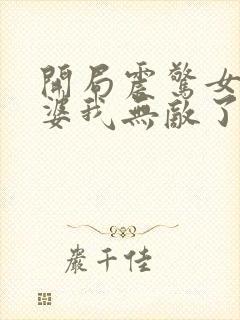 開局震驚女
婆我無敵了
嚴千佳